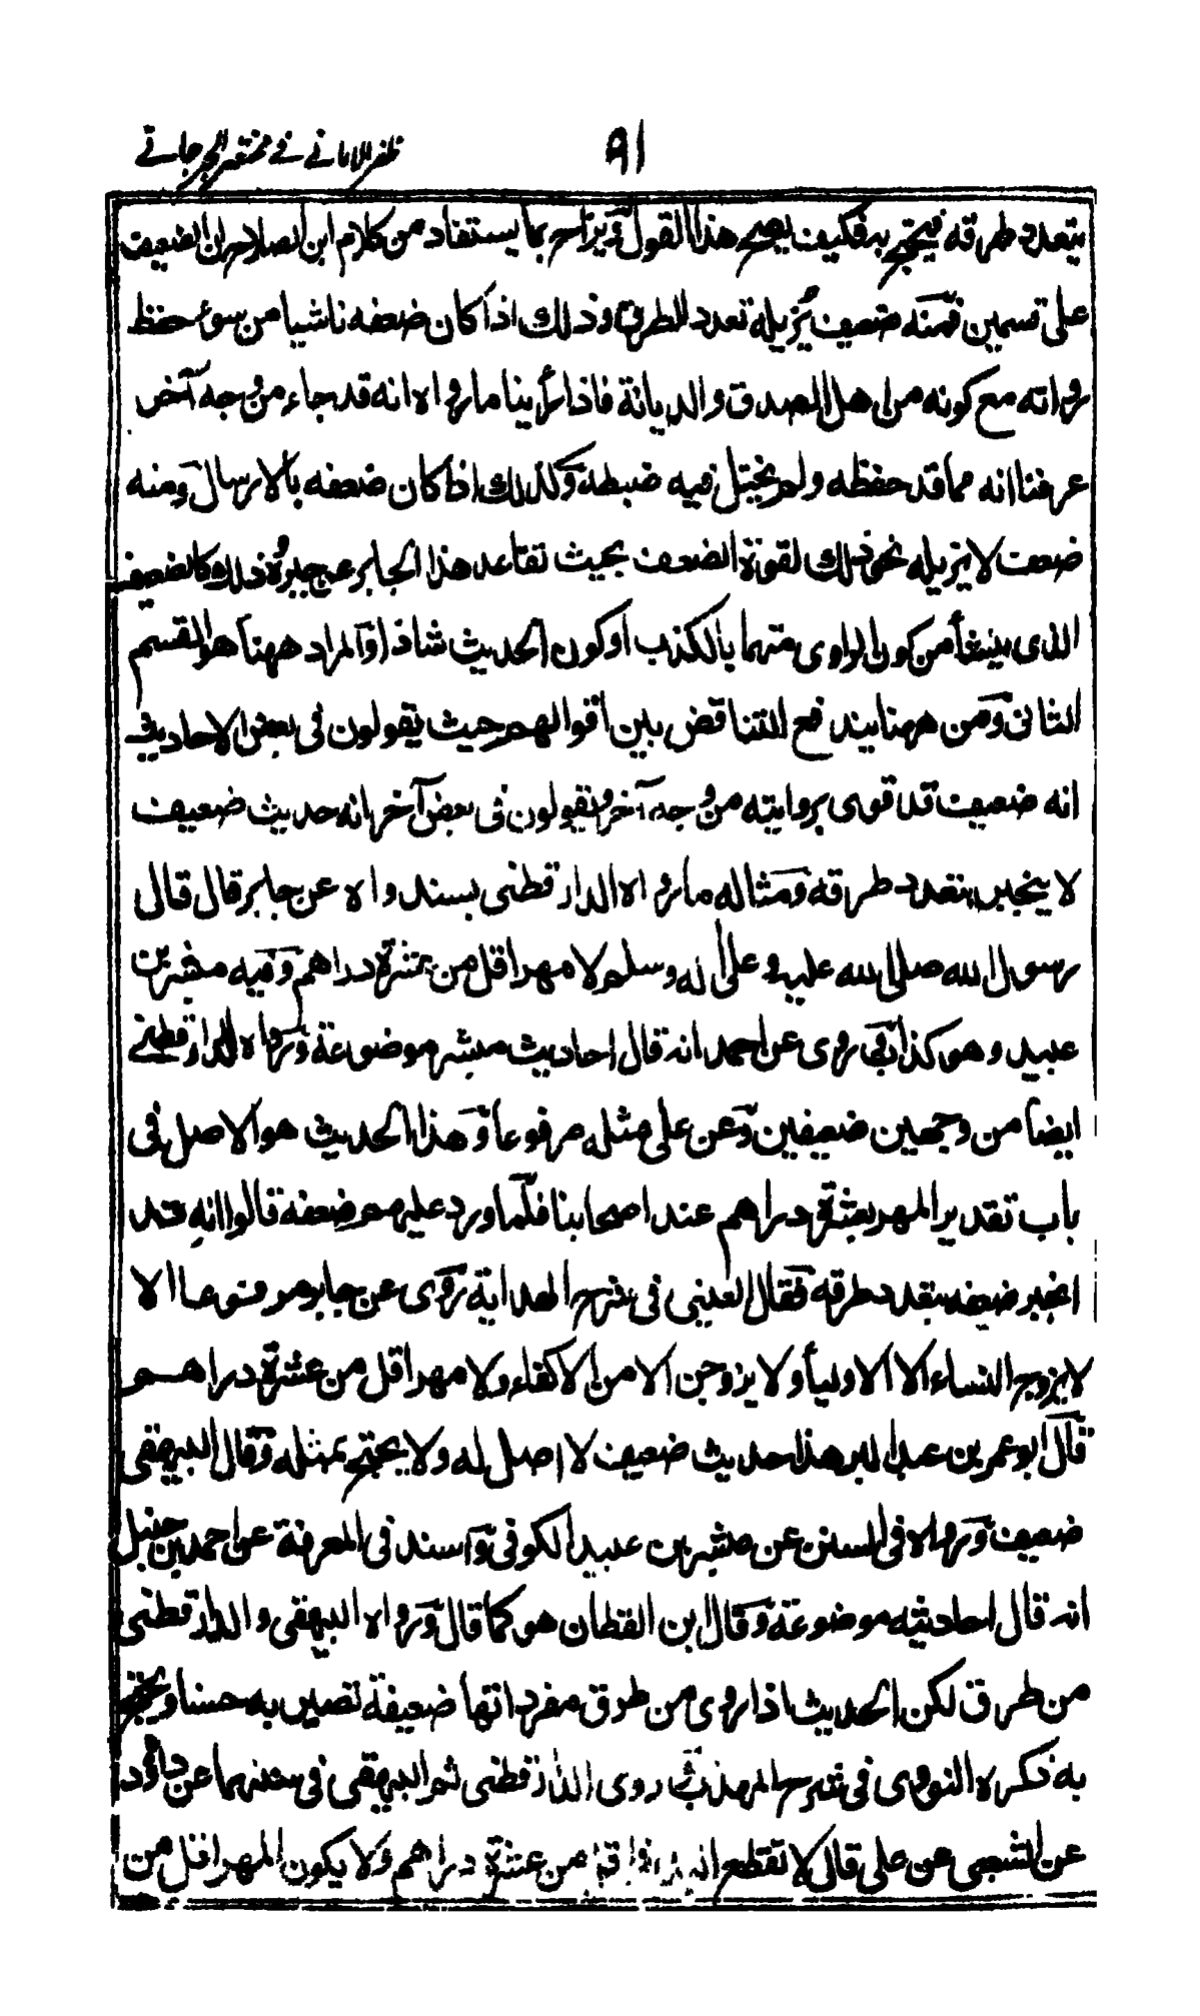 ٩١
ظفر الاماني في مختصر الجرجاني
بتعدد طرقه فيحتج به فكيف يصح هذا القول قد يزاح بما يستفاد من كلام ابن الصلاح ان الضعيف
على قسمين فمنه ضعيف يزيله تعدد الطرق وذلك اذا كان ضعفه ناشيا من سوء حفظ
رواته مع كونه من اهل الصدق والديانة فاذا رأينا ما رواه انه قد جاء من وجه آخر
عرفنا انه مما قد حفظه ولم يختل فيه ضبطه وكذلك اذا كان ضعفه بالارسال ومنه
ضعف لا يزيله نحو ذلك لقوة الضعف بحيث تقاعد هذا الجابر عن جبره ذلك كالضعيف
الذى ينشأ من كون الراوى متهما بالكذب او كون الحديث شاذا والمراد ههنا هو القسم
الثانى ومن ههنا يندفع التناقض بين أقوالهم حيث يقولون فى بعض الاحاديث
انه ضعيف قد قوى بروايته من وجه آخر ويقولون فى بعض آخر انه حديث ضعيف
لا ينجبر بتعدد طرقه ومثاله ما رواه الدارقطنى بسند واه عن جابر قال قال
رسول الله صلى الله عليه وعلى آله وسلم لا مهر اقل من عشرة دراهم وفيه مبشر بن
عبيد وهو كذاب روى عن احمد انه قال احاديث مبشر موضوعة ورواه الدارقطني
ايضا من وجهين ضعيفين وعن على مثله مرفوعا وهذا الحديث هو الاصل فى
باب تقدير المهر بعشرة دراهم عند اصحابنا فلما ورد عليهم ضعفه قالوا انه قد
انجبر ضعفه بتعدد طرقه فقال العينى فى شرح الهداية روى عن جابر مرفوعا الا
لا يزوج النساء الا الاوليأ ولا يزوجن الا من الاكفاء ولا مهر اقل من عشرة دراهم
قال ابو عمر بن عبد البر هذا حديث ضعيف لا اصل له ولا يحتج بمثله وقال البيهقى
ضعيف ورواه فى السنن عن مبشر بن عبيد الكوفى واسند فى المعرفة عن احمد بن حنبل
انه قال احاديثه موضوعة وقال ابن القطان هو كما قال ورواه البيهقى والدارقطنى
من طرق لكن الحديث اذا روى من طرق مفرداتها ضعيفة تصير به حسنا ويحتج
به ذكره النووى فى شرح المهذب روى الدارقطنى ثم البيهقى فى سننهما عن داؤد
عن الشعبى عن على قال لا تقطع من عشرة دراهم ولا يكون المهر اقل من